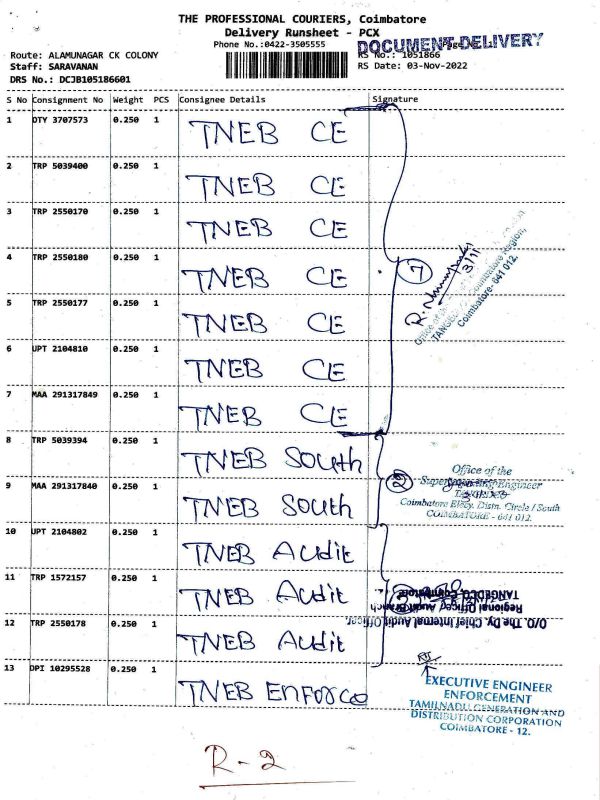 THE PROFESSIONAL COURIERS, Coimbatore
Delivery Runsheet - PCX
Phone No.:0422-3505555
DOCUMENT DELIVERY
Route: ALAMUNAGAR CK COLONY
RS No.: 1051866
Staff: SARAVANAN
RS Date: 03-Nov-2022
DRS No.: DCJB105186601
S No Consignment No Weight PCS Consignee Details Signature
1 DTY 3707573 0.250 1 TNEB CE
2 TRP 5039400 0.250 1 TNEB CE
3 TRP 2550170 0.250 1 TNEB CE
4 TRP 2550180 0.250 1 TNEB CE
7
3/11
Coimbatore Region,
Coimbatore- 641 012.
5 TRP 2550177 0.250 1 TNEB CE
6 UPT 2104810 0.250 1 TNEB CE
7 MAA 291317849 0.250 1 TNEB CE
8 TRP 5039394 0.250 1 TNEB South
2
Office of the
Superintending Engineer
TANGEDCO
Coimbatore Elecy. Distn. Circle / South
COIMBATORE - 641 012.
9 MAA 291317840 0.250 1 TNEB South
10 UPT 2104802 0.250 1 TNEB Audit
11 TRP 1572157 0.250 1 TNEB Audit
3
O/O. The Dy. Chief Internal Audit Officer,
Regional Office, Audit Branch
TANGEDCO, Coimbatore
12 TRP 2550178 0.250 1 TNEB Audit
13 DPI 10295528 0.250 1 TNEB Enforce
EXECUTIVE ENGINEER
ENFORCEMENT
TAMILNADU GENERATION AND
DISTRIBUTION CORPORATION
COIMBATORE - 12.
R-2